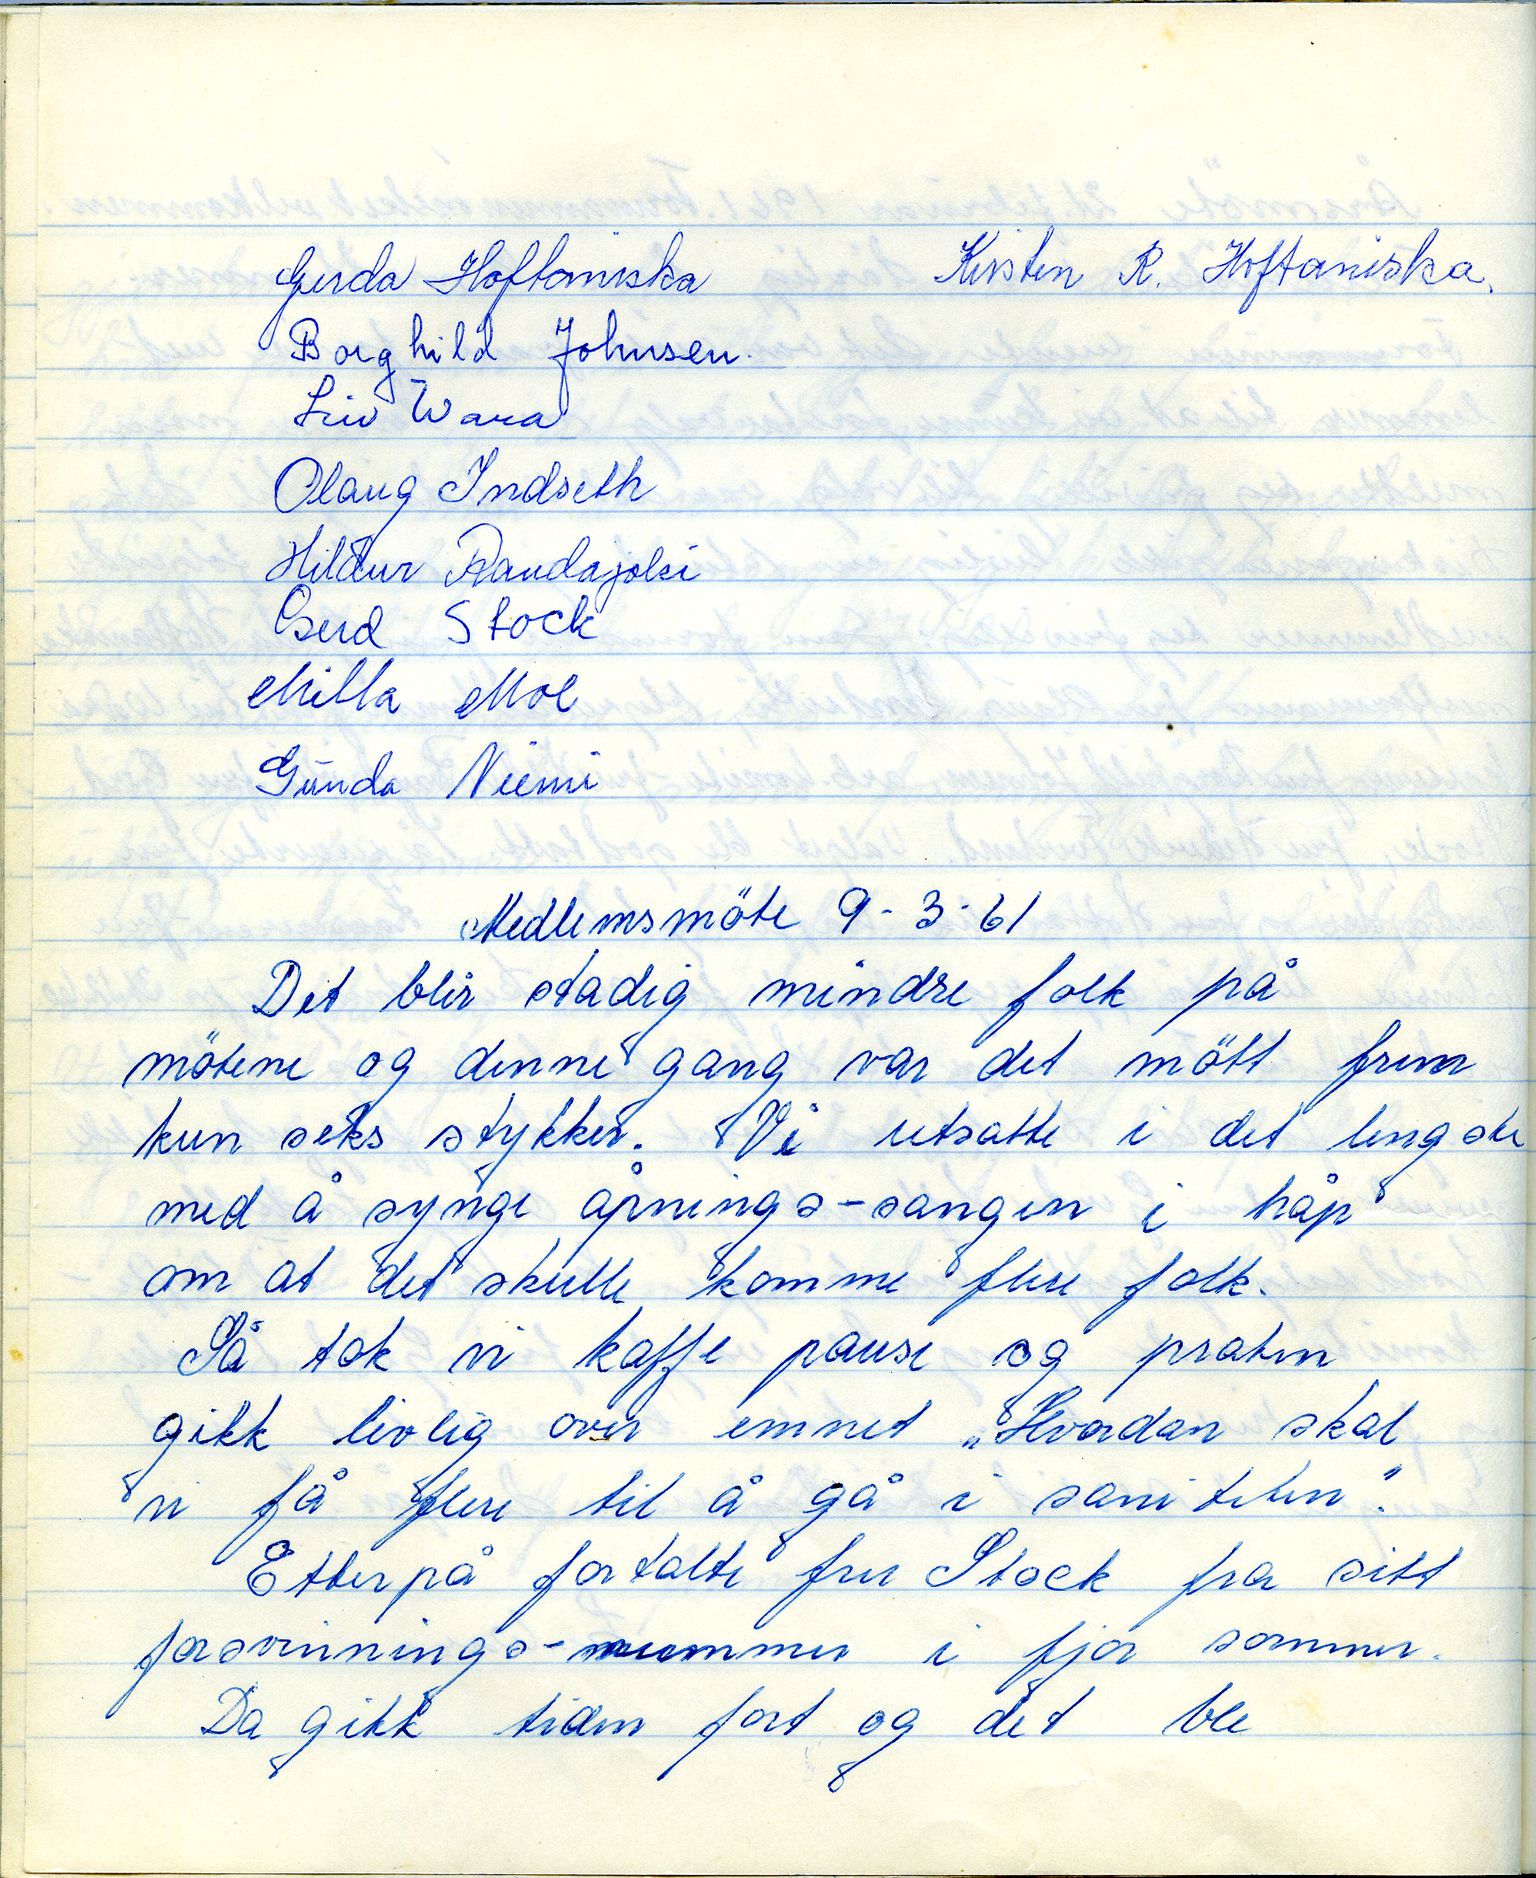 Gerda Hoftaniska
Kirsten R. Hoftaniska.
Borghild Johnsen.
Liv Wara
Olaug Indseth
Hildur Raudajoki
Gerd Stock
Milla Moe
Gunda Niemi
Medlemsmöte 9-3-61
Det blir stadig mindre folk på
mötene og denne gang var det mött frem
kun seks stykker. Vi utsatte i det lengste
med å synge åpnings-sangen i håp
om at det skulle komme flere folk.
Så tok vi kaffe pause og praten
gikk livlig over emnet „Hvordan skal
vi få flere til å gå i saniteten".
Etterpå fortalte fru Stock fra sitt
forsvinnings-nummer i fjor sommer.
Da gikk tiden fort og det ble